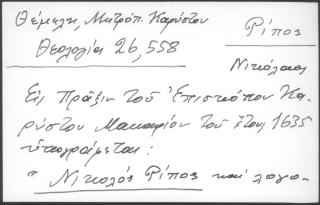 Θέμελη, Μητρόπ. Καρύστου
Θεολογία 26, 558
Ρίπος
Νικόλαος
Εις Πράξιν του Επισκόπου Κα-
ρύστου Μακαρίου του έτους 1635
υπογράφεται:
"Νικολός Ρίπος και λογο-